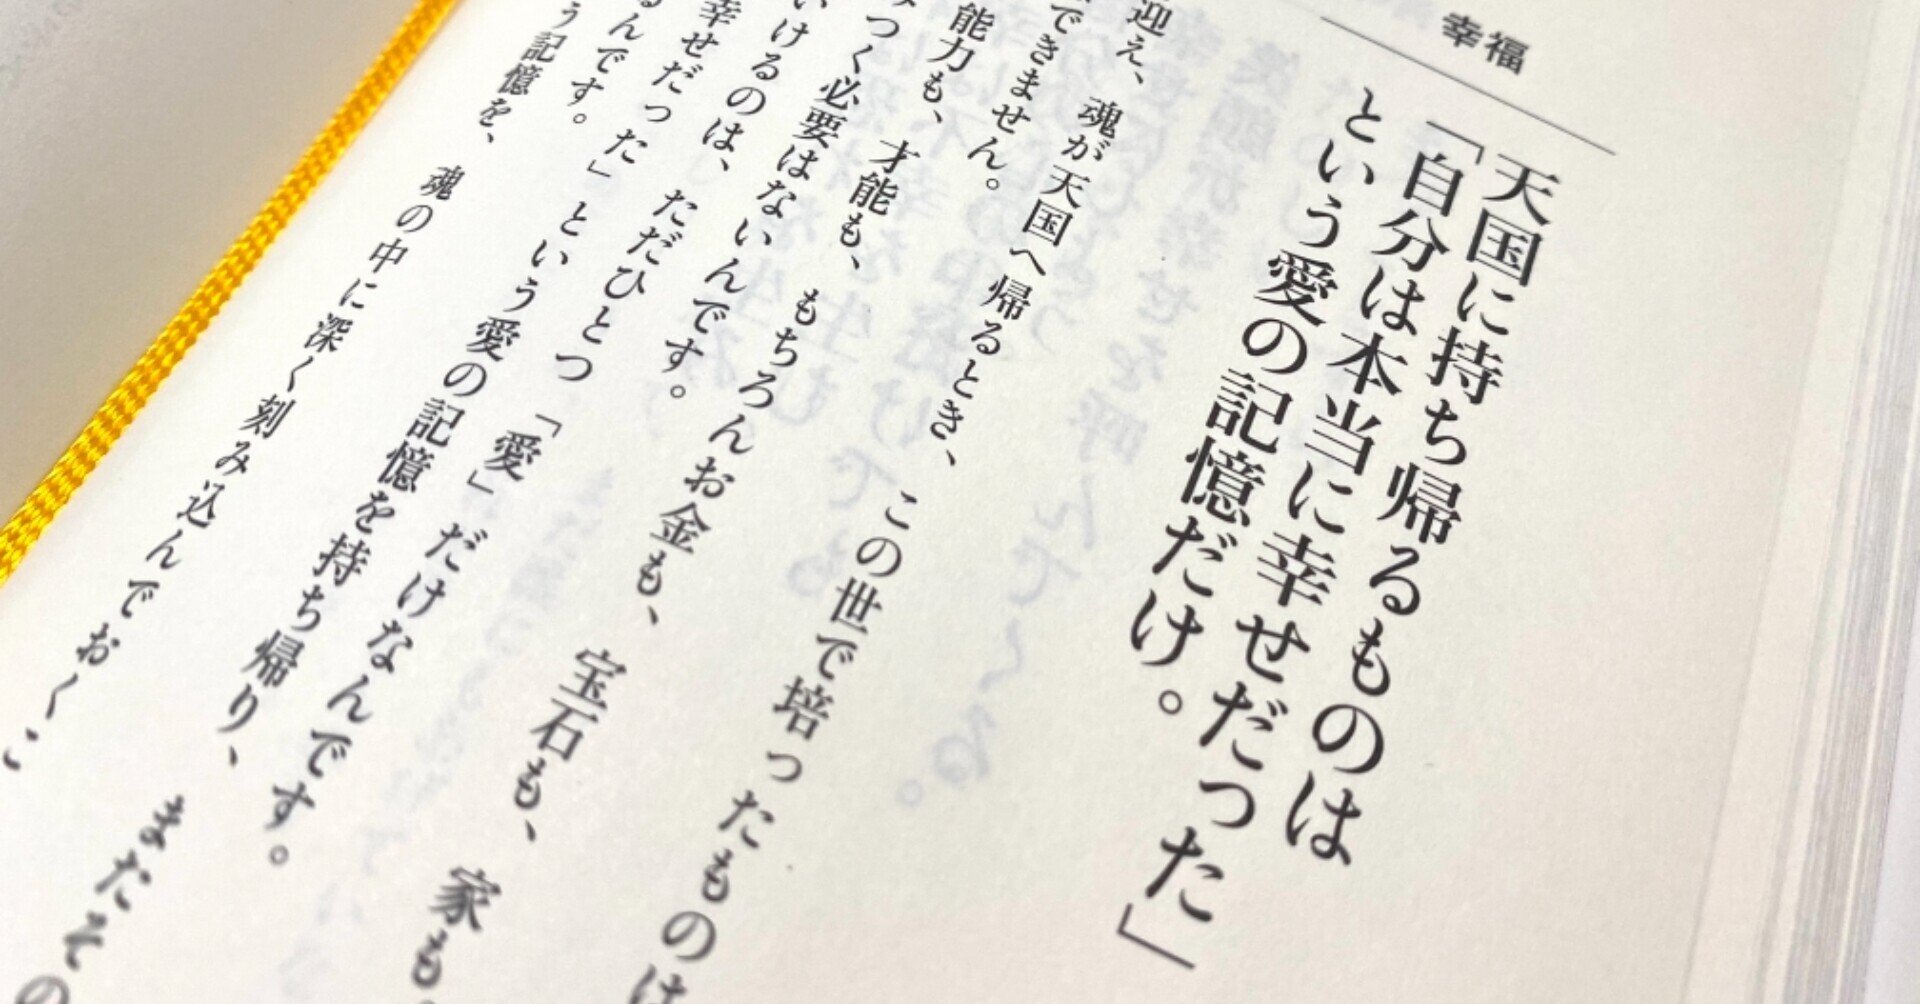 幸福
天国に持ち帰るものは
「自分は本当に幸せだった」
という愛の記憶だけ。
迎え、魂が天国へ帰るとき、この世で培ったものは
できません。
能力も、才能も、もちろんお金も、宝石も、家も、
みつく必要はないんです。
いけるのは、ただひとつ「愛」だけなんです。
幸せだった」という愛の記憶を持ち帰り、またその
るんです。
う記憶を、魂の中に深く刻み込んでおくこ